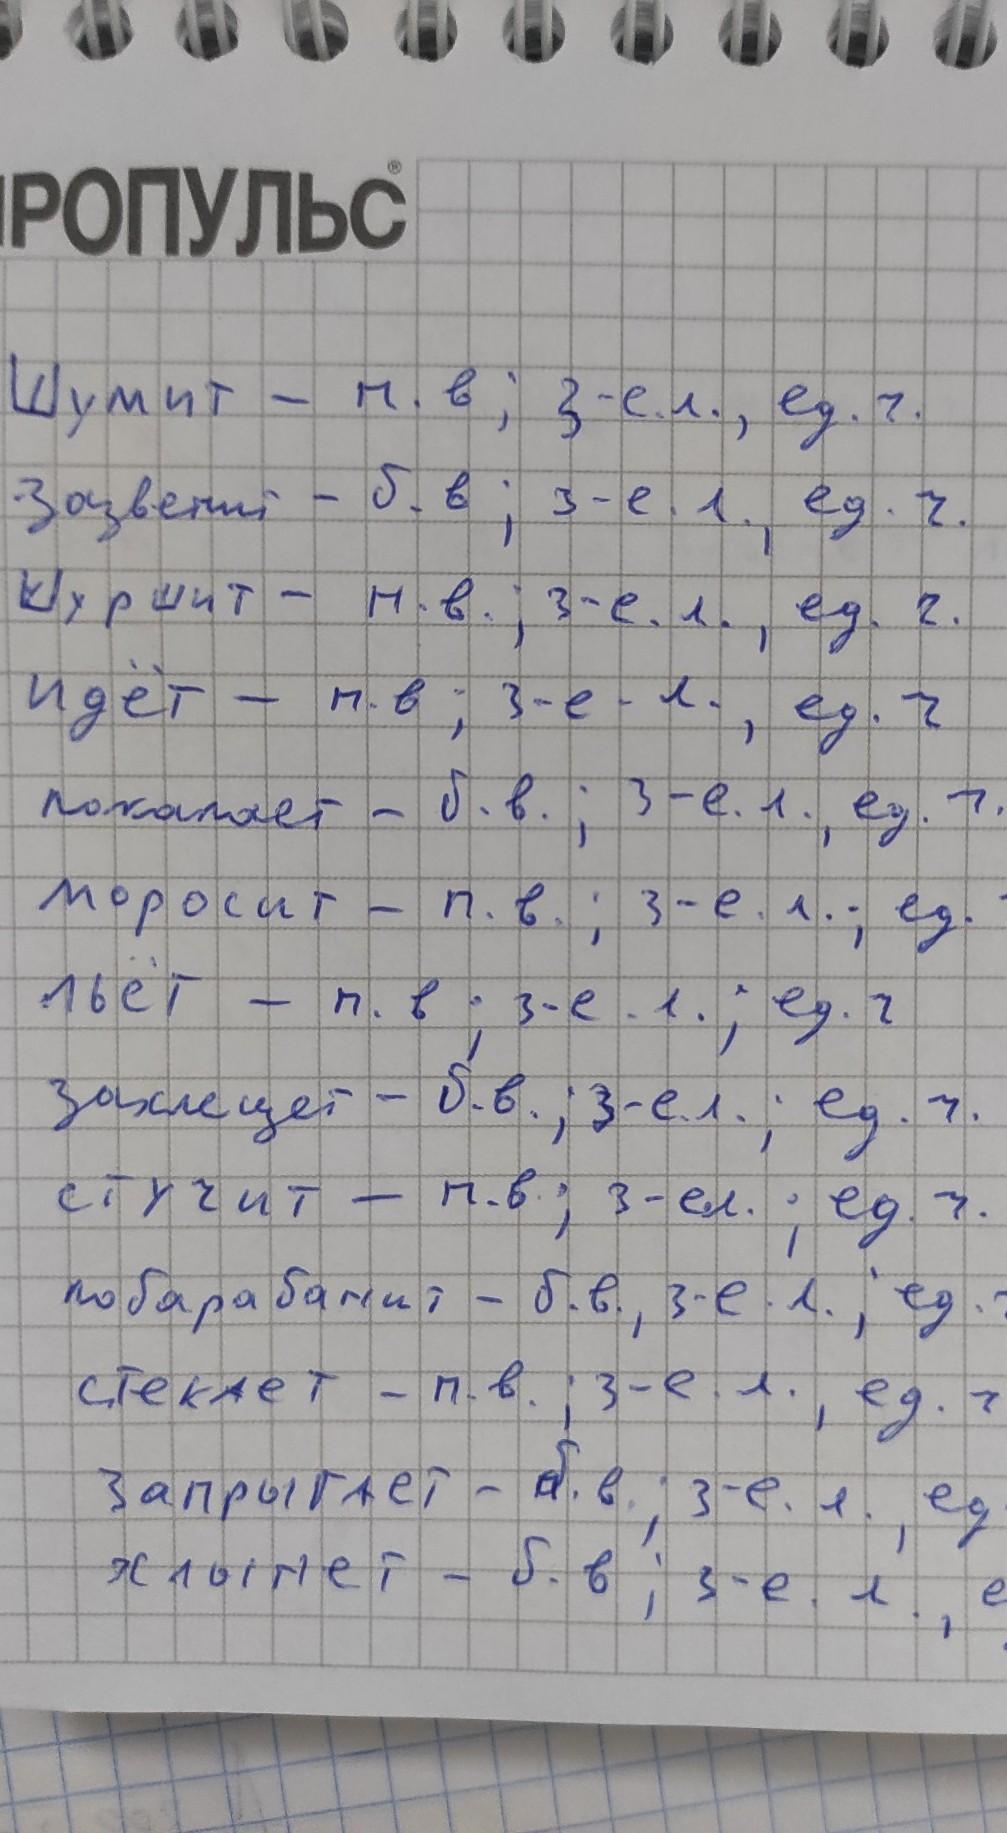 РОПУЛЬС®
Шумит – н.в; 3-е.л., ед.ч.
Зазвенит – б.в; 3-е.л., ед.ч.
Шуршит – н.в.; 3-е.л., ед.ч.
идёт – н.в; 3-е-л., ед.ч
покапает – б.в.; 3-е.л., ед.ч.
моросит – н.в.; 3-е.л.; ед.
льёт – н.в; 3-е.л.; ед.ч
захлещет – б.в.; 3-е.л.; ед.ч.
стучит – н.в; 3-ел.; ед.ч.
побарабанит – б.в., 3-е.л.; ед.ч
стекает – н.в.; 3-е.л., ед.ч
запрыгает – б.в.; 3-е.л., ед
хлынет – б.в; 3-е.л.,